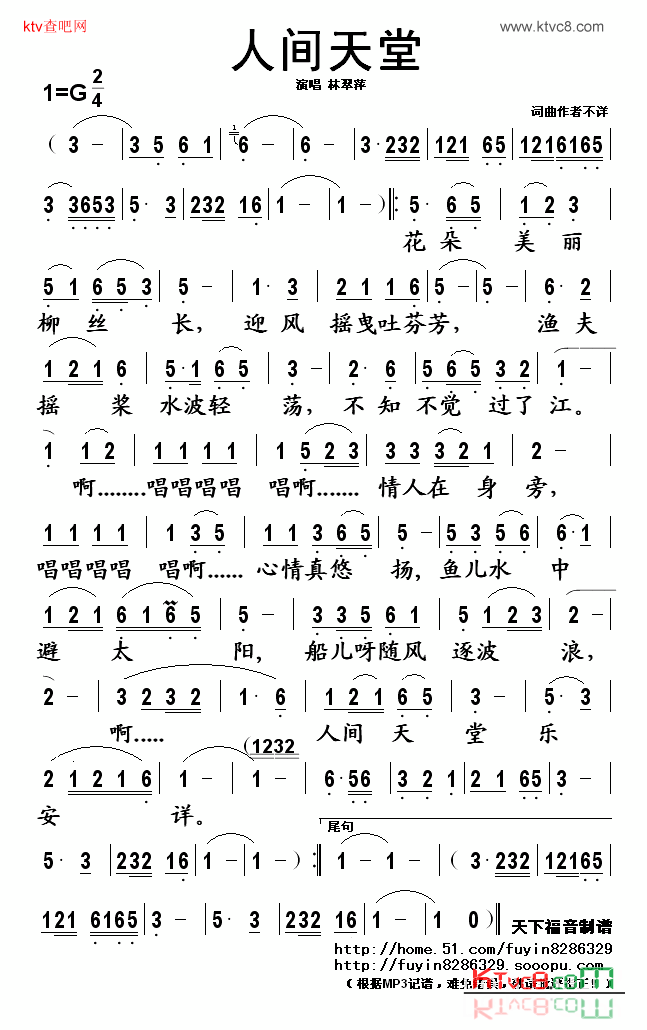 ktv查吧网
www.ktvc8.com
人间天堂
演唱 林翠萍
1=G 2/4
词曲作者不详
( 3 - | 3 5 6 1 | 1 6 - | 6 - | 3· 232 | 121 65 | 1216165 |
3 3653 | 5· 3 | 232 16· | 1 - | 1 - ) ‖: 5· 6 5 | 1 2 3 |
花朵 美丽
5 1 6 5 3 | 5 - | 1· 3 | 2 1 1 6 | 5 - | 5 - | 6· 2 |
柳丝 长, 迎风 摇曳吐芬芳, 渔夫
1 2 1 6 | 5·1 6 5 | 3 - | 2· 6 | 5 6 5 | 3 2 3 | 1 - |
摇 桨 水波轻 荡, 不知 不觉 过了江。
1 1 2 | 1 1 1 1 | 1 5 2 3 | 3 3 3 2 1 | 2 - |
啊........唱唱唱唱 唱啊....... 情人在 身 旁,
1 1 1 1 | 1 3 5 | 1 1 3 6 5 | 5 - | 5 3 5 6 | 6·1 |
唱唱唱唱 唱啊...... 心情真悠 扬, 鱼儿水 中
1 2 1 6 1 6 5 | 5 - | 3 3 5 6 1 | 5 1 2 3 | 2 - |
避 太 阳, 船儿呀随风 逐波 浪,
2 - | 3 2 3 2 | 1· 6 | 1 2 1 6 5 | 3 - | 5· 3 |
啊..... 人间 天 堂 乐
(1232
2 1 2 1 6 | 1 - | 1 - | 6·56 | 3 2 1 | 2 1 65 | 3 - |
安 详。
尾句
5· 3 | 232 16 | 1 - | 1 - :‖ 1 - | 1 - | ( 3· 232 | 12165 |
121 6165 | 3 - | 5· 3 | 232 16 | 1 - | 1 0 )‖
天下福音制谱
http://home.51.com/fuyin8286329
http://fuyin8286329.sooopu.com
(根据MP3记谱,难免
KTVC8.com